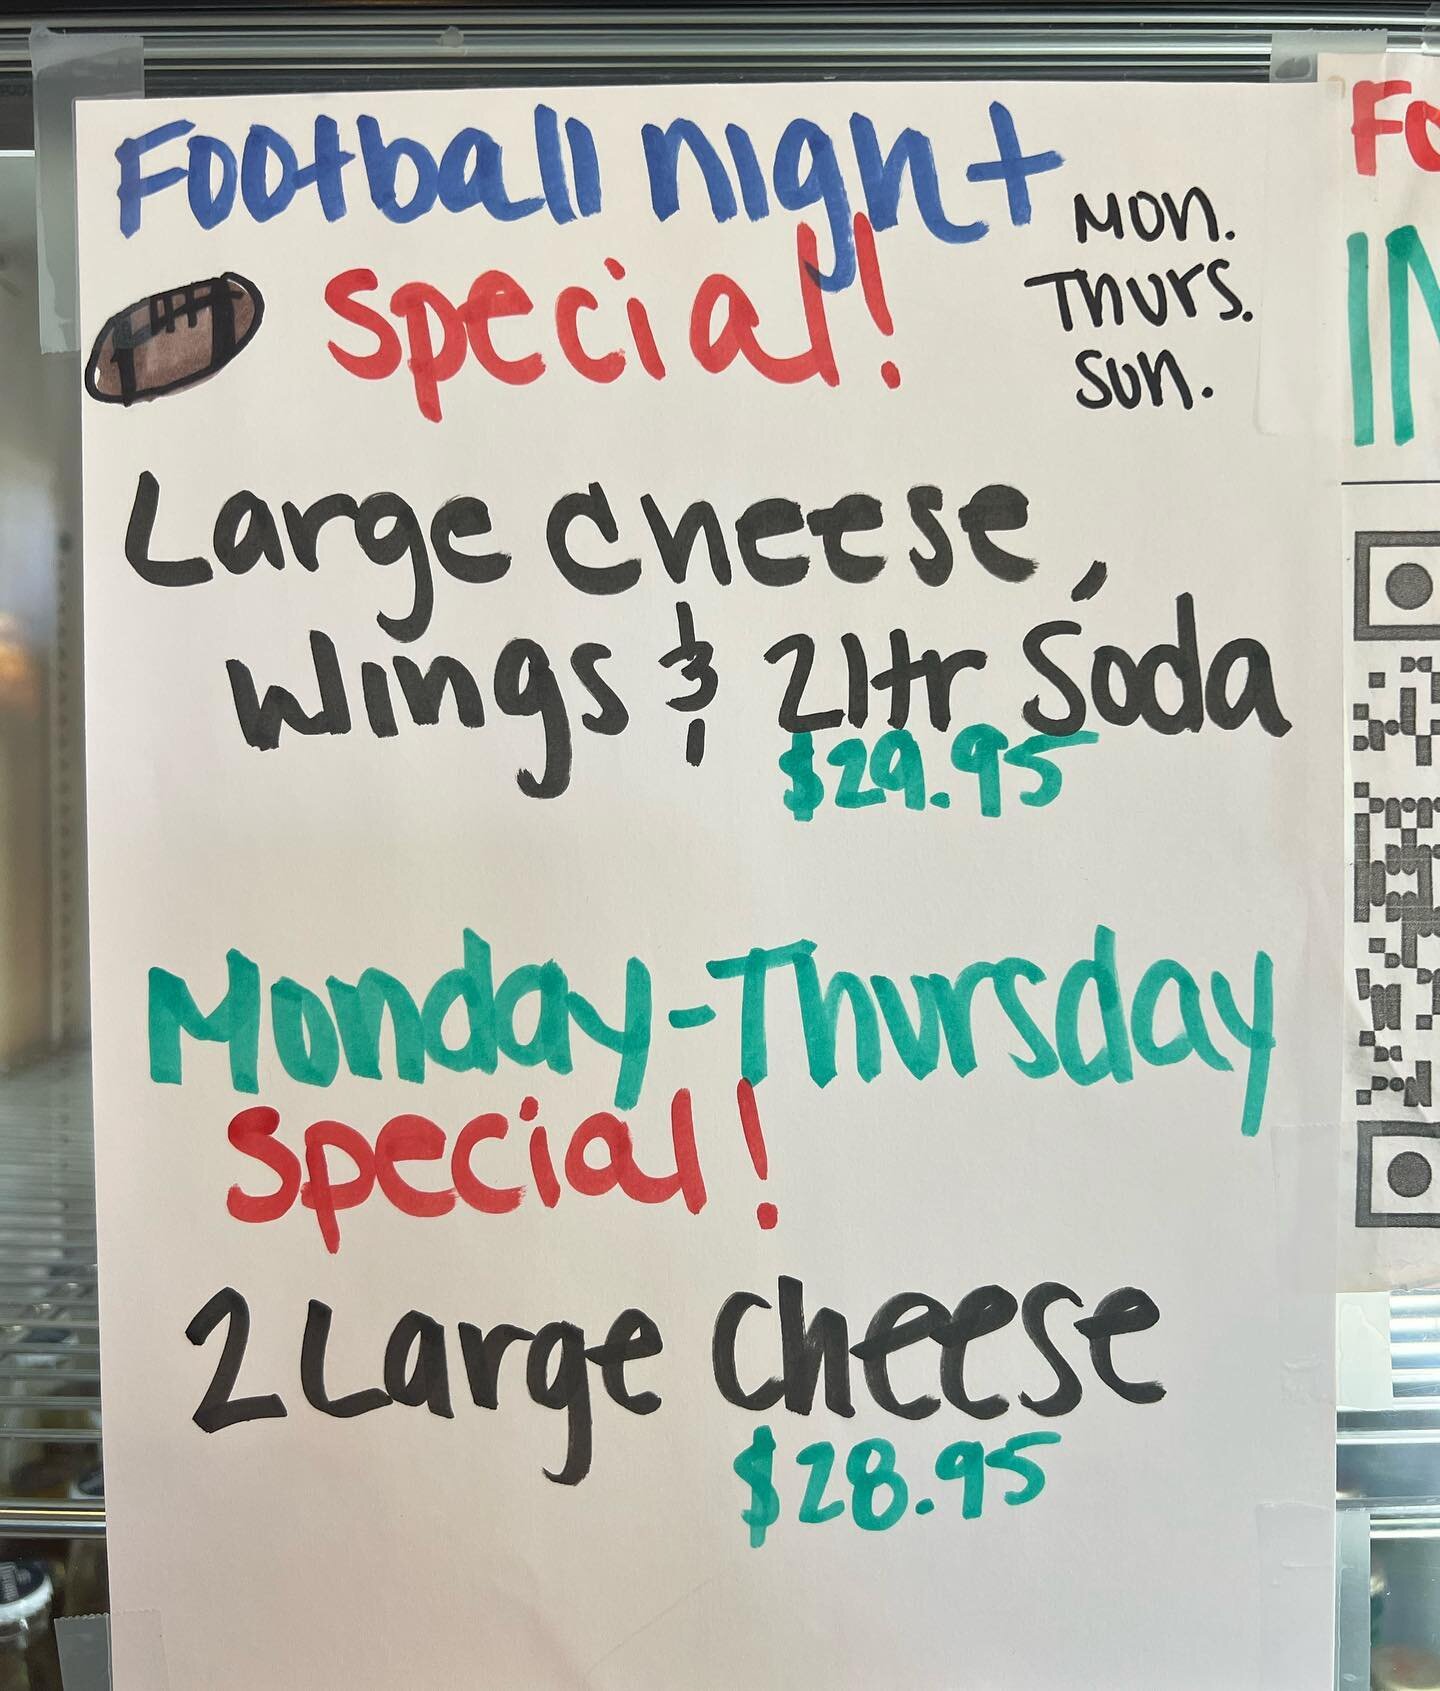 Football night
Mon.
Thurs.
Sun.
special!
Large cheese,
Wings & 2ltr Soda
$29.95
Monday-Thursday
special!
2 Large cheese
$28.95